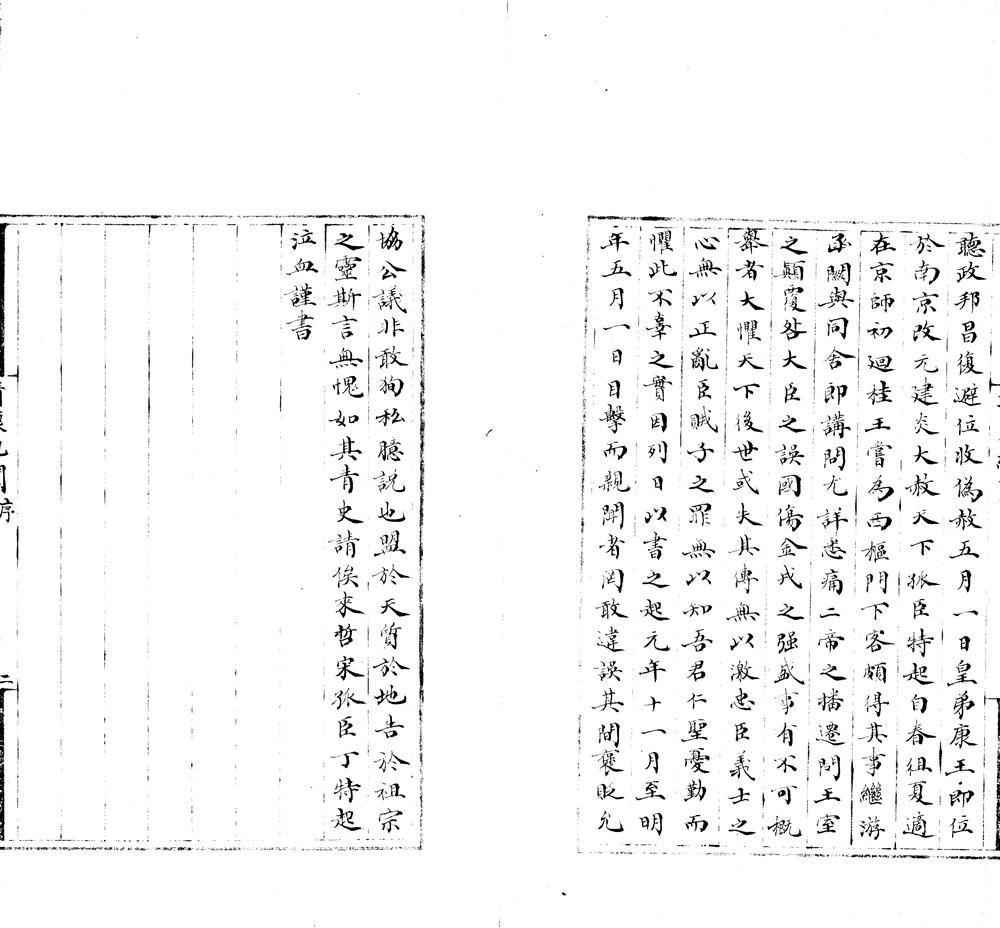 聽政邦昌復避位收偽赦五月一日皇弟康王即位
於南京改元建炎大赦天下孤臣特起自春徂夏適
在京師初迴桂王嘗為西樞門下客頗得其事繼游
函關與同舍郎講問尤詳悉痛二帝之播遷問王室
之顛覆咎大臣之誤國傷金戎之强盛事有不可概
舉者大懼天下後世或失其傳無以激忠臣義士之
心無以正亂臣賊子之罪無以知吾君仁聖憂勤而
懼此不辜之實因列日以書之起元年十一月至明
年五月一日目擊而親聞者罔敢違誤其間褒貶允
協公議非敢狥私臆說也盟於天質於地告於祖宗
之靈斯言無愧如其青史請俟來哲宋孤臣丁特起
泣血謹書
序
二